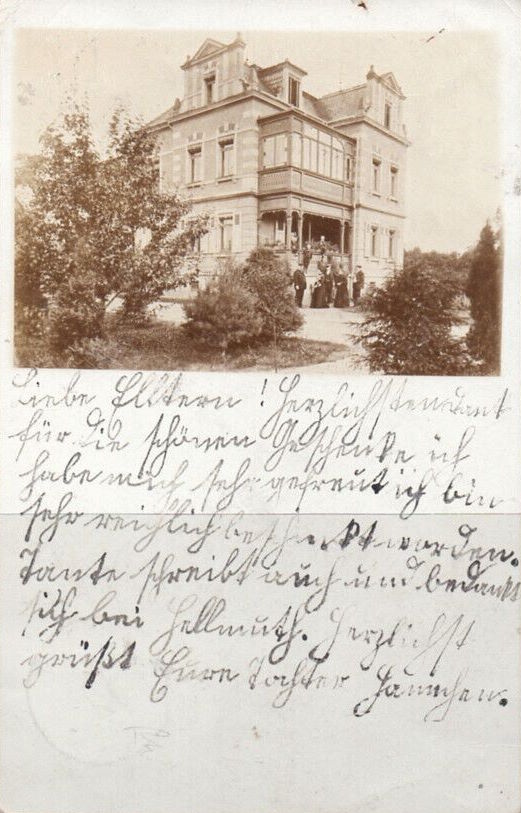 Liebe Elltern! Herzlichsten dank
für die schönen Geschenke ich
habe mich sehr gefreut ich bin
sehr reichlich beschenkt worden.
Tante schreibt auch und bedankt
sich bei Hellmuth. Herzlichst
grüßt Eure Tochter Hannchen.